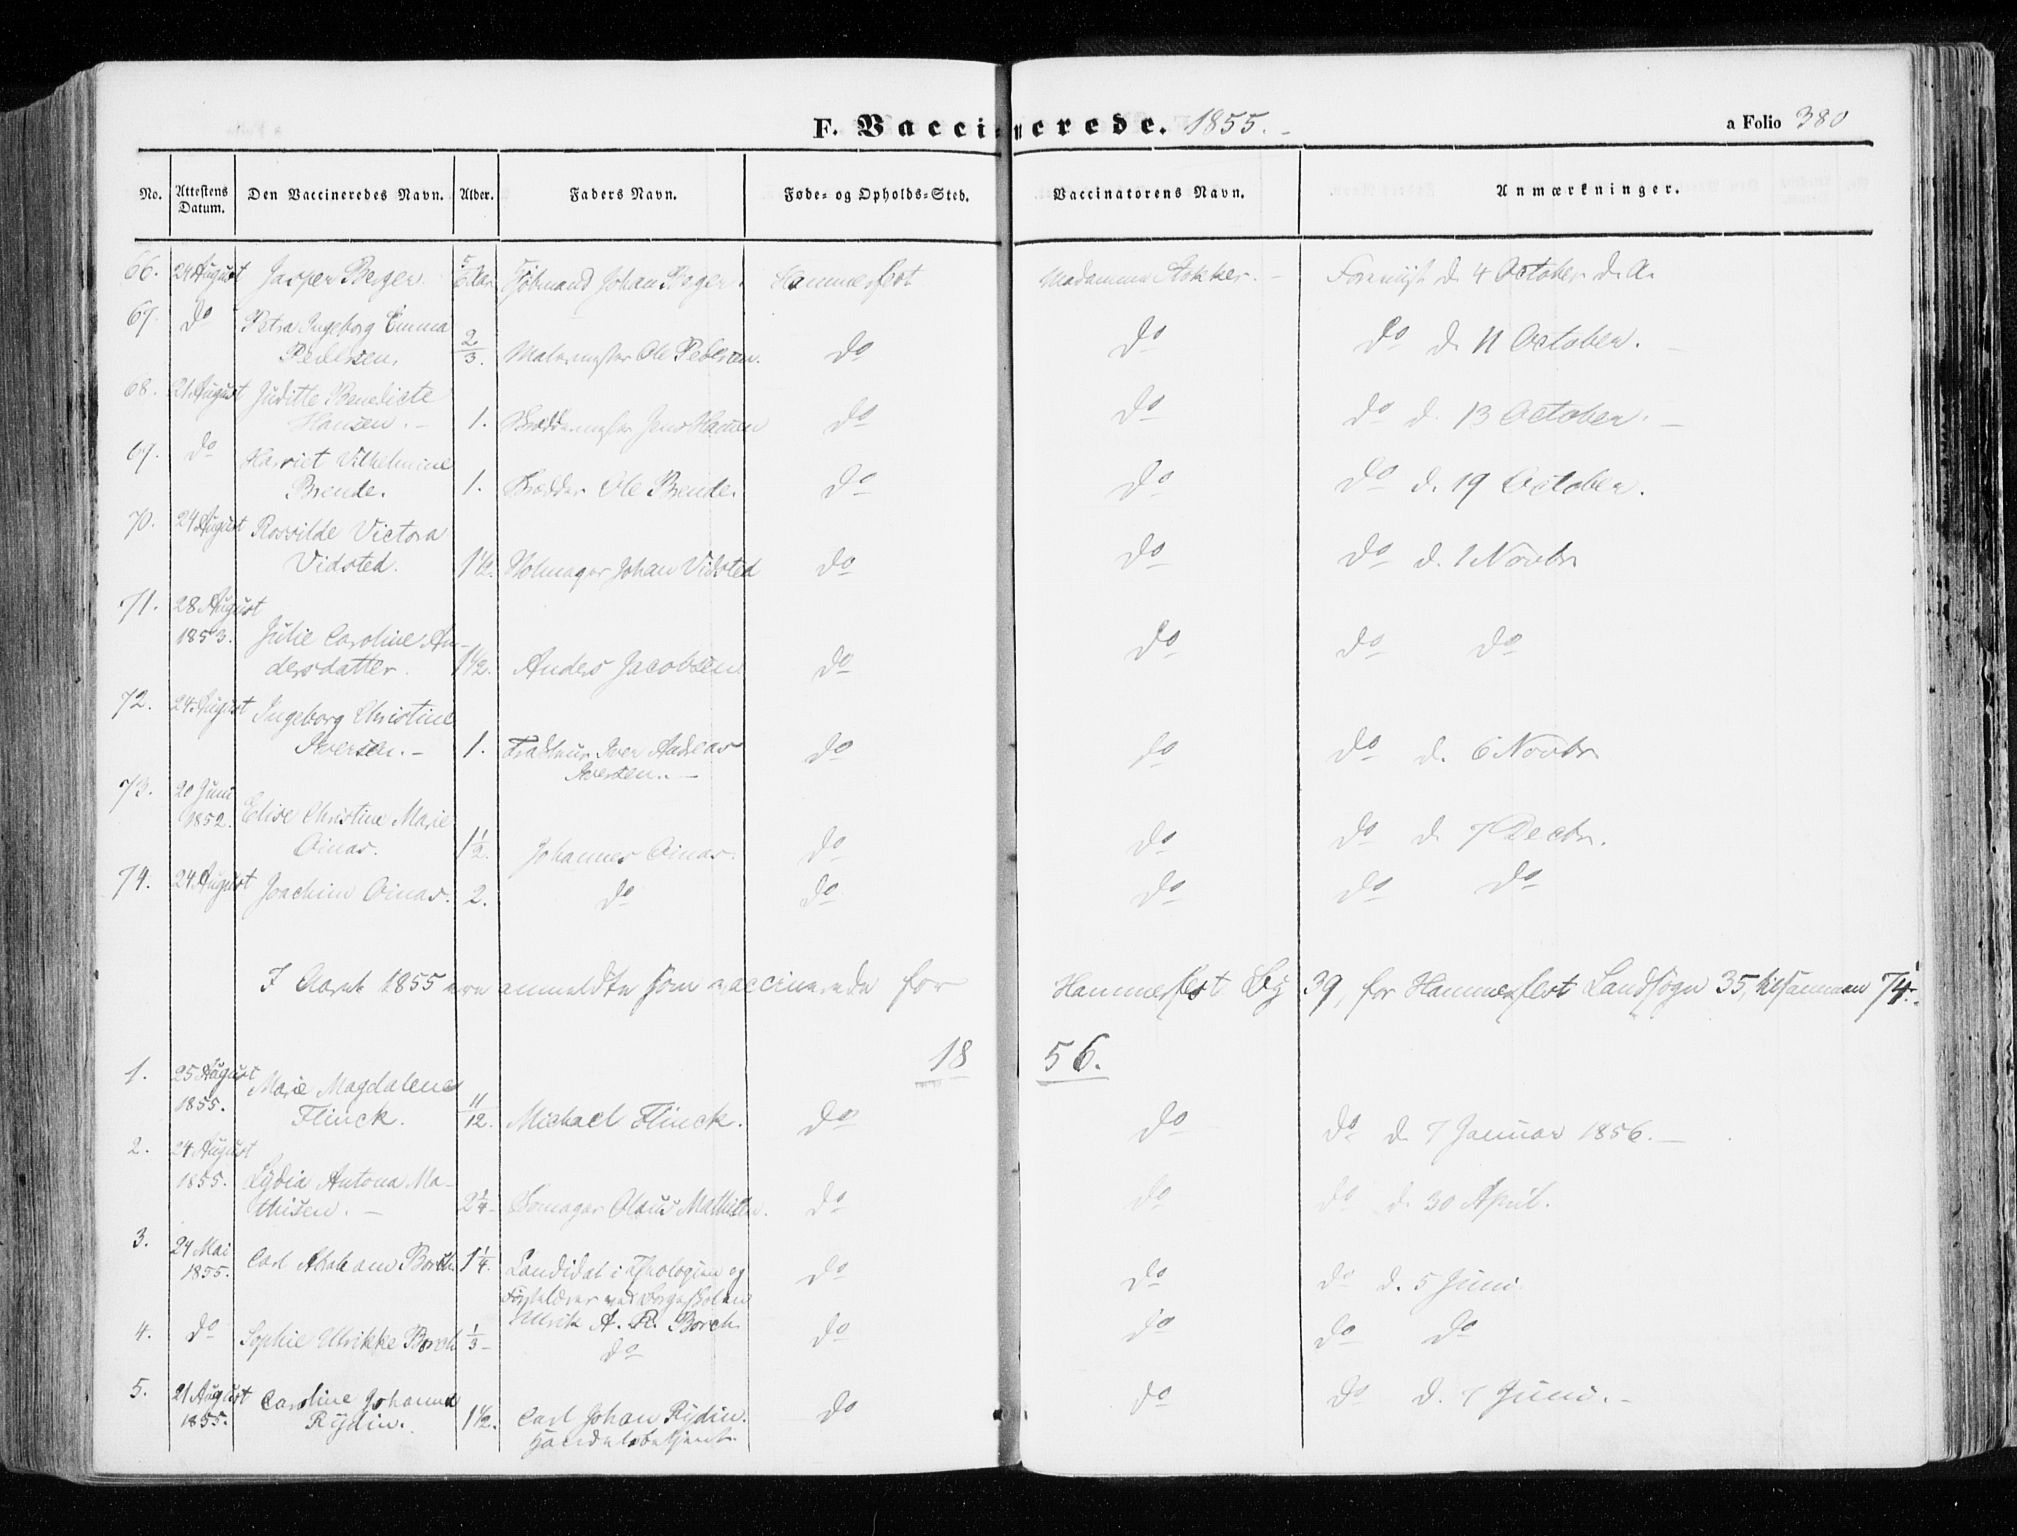 F. Vaccinerede. 1855. a Folio 380
No. Attestens Datum. Den Vaccineredes Navn. Alder. Faders Navn. Føde- og Opholds-Sted. Vaccinatorens Navn. Anmærkninger.
66. 24 August Jasper Berger Johan Berger. Hammerfest Madamme Stokker. d. 4 October d. A.
67. do Petra Ingeborg Emma
Pedersen. 2/3. Malermester Ole Pedersen. do do do d. 11 October.
68. 21 August Juditte Benedicte
Hansen. 1. Jens Hansen do do do d. 13 October.
69. do Harriet Vilhelmine
Brende. 1. Ole Brende. do do do d. 19 October.
70. 24 August Rosvilde Victora
Vidsted. 1 1/2. Johan Vidsted do do do d. 1 Novbr
71. 28 August
1853. Julie Caroline An-
dersdatter. 1 1/2. Anders Jacobsen do do do do
72. 24 August Ingeborg Christine
Iversen. 1. Iver Andreas do do do d. 6 Novbr
Iversen.
73. 20 Juni
1852. Elise Christine Marie
Oinas. 1 1/2. Johannes Oinas. do do do d. 7 Decbr.
74. 24 August Joachim Oinas. 2. do do do do do
I Aaret 1855 ere anmeldte som vaccinerede for Hammerfest By 39, for Hammerfest Landsogn 35, tilsammen 74.
1856.
1. 25 August
1855. Marie Magdalene
Flinck. 11/12. Michael Flinck. do do do d. 7 Januar 1856.
2. 24 August
1855. Lydia Antona Ma-
thisen. 2 1/4 Olaus Mathisen. do do do d. 30 April.
3. 24 Mai
1855. Carl Abraham Borch 1 1/4. Candidat i Theologien og do do do d. 5 Juni.
ved Borgerskolen
Ulrik A. R. Borch
4. do Sophie Ulrikke Borch 1/3 do do do do do
5. 21 August
1855. Caroline Johanna
Rydin. 1 1/2. Carl Johan Rydin. do do do d. 7 Juni.
Handelsbetjent.